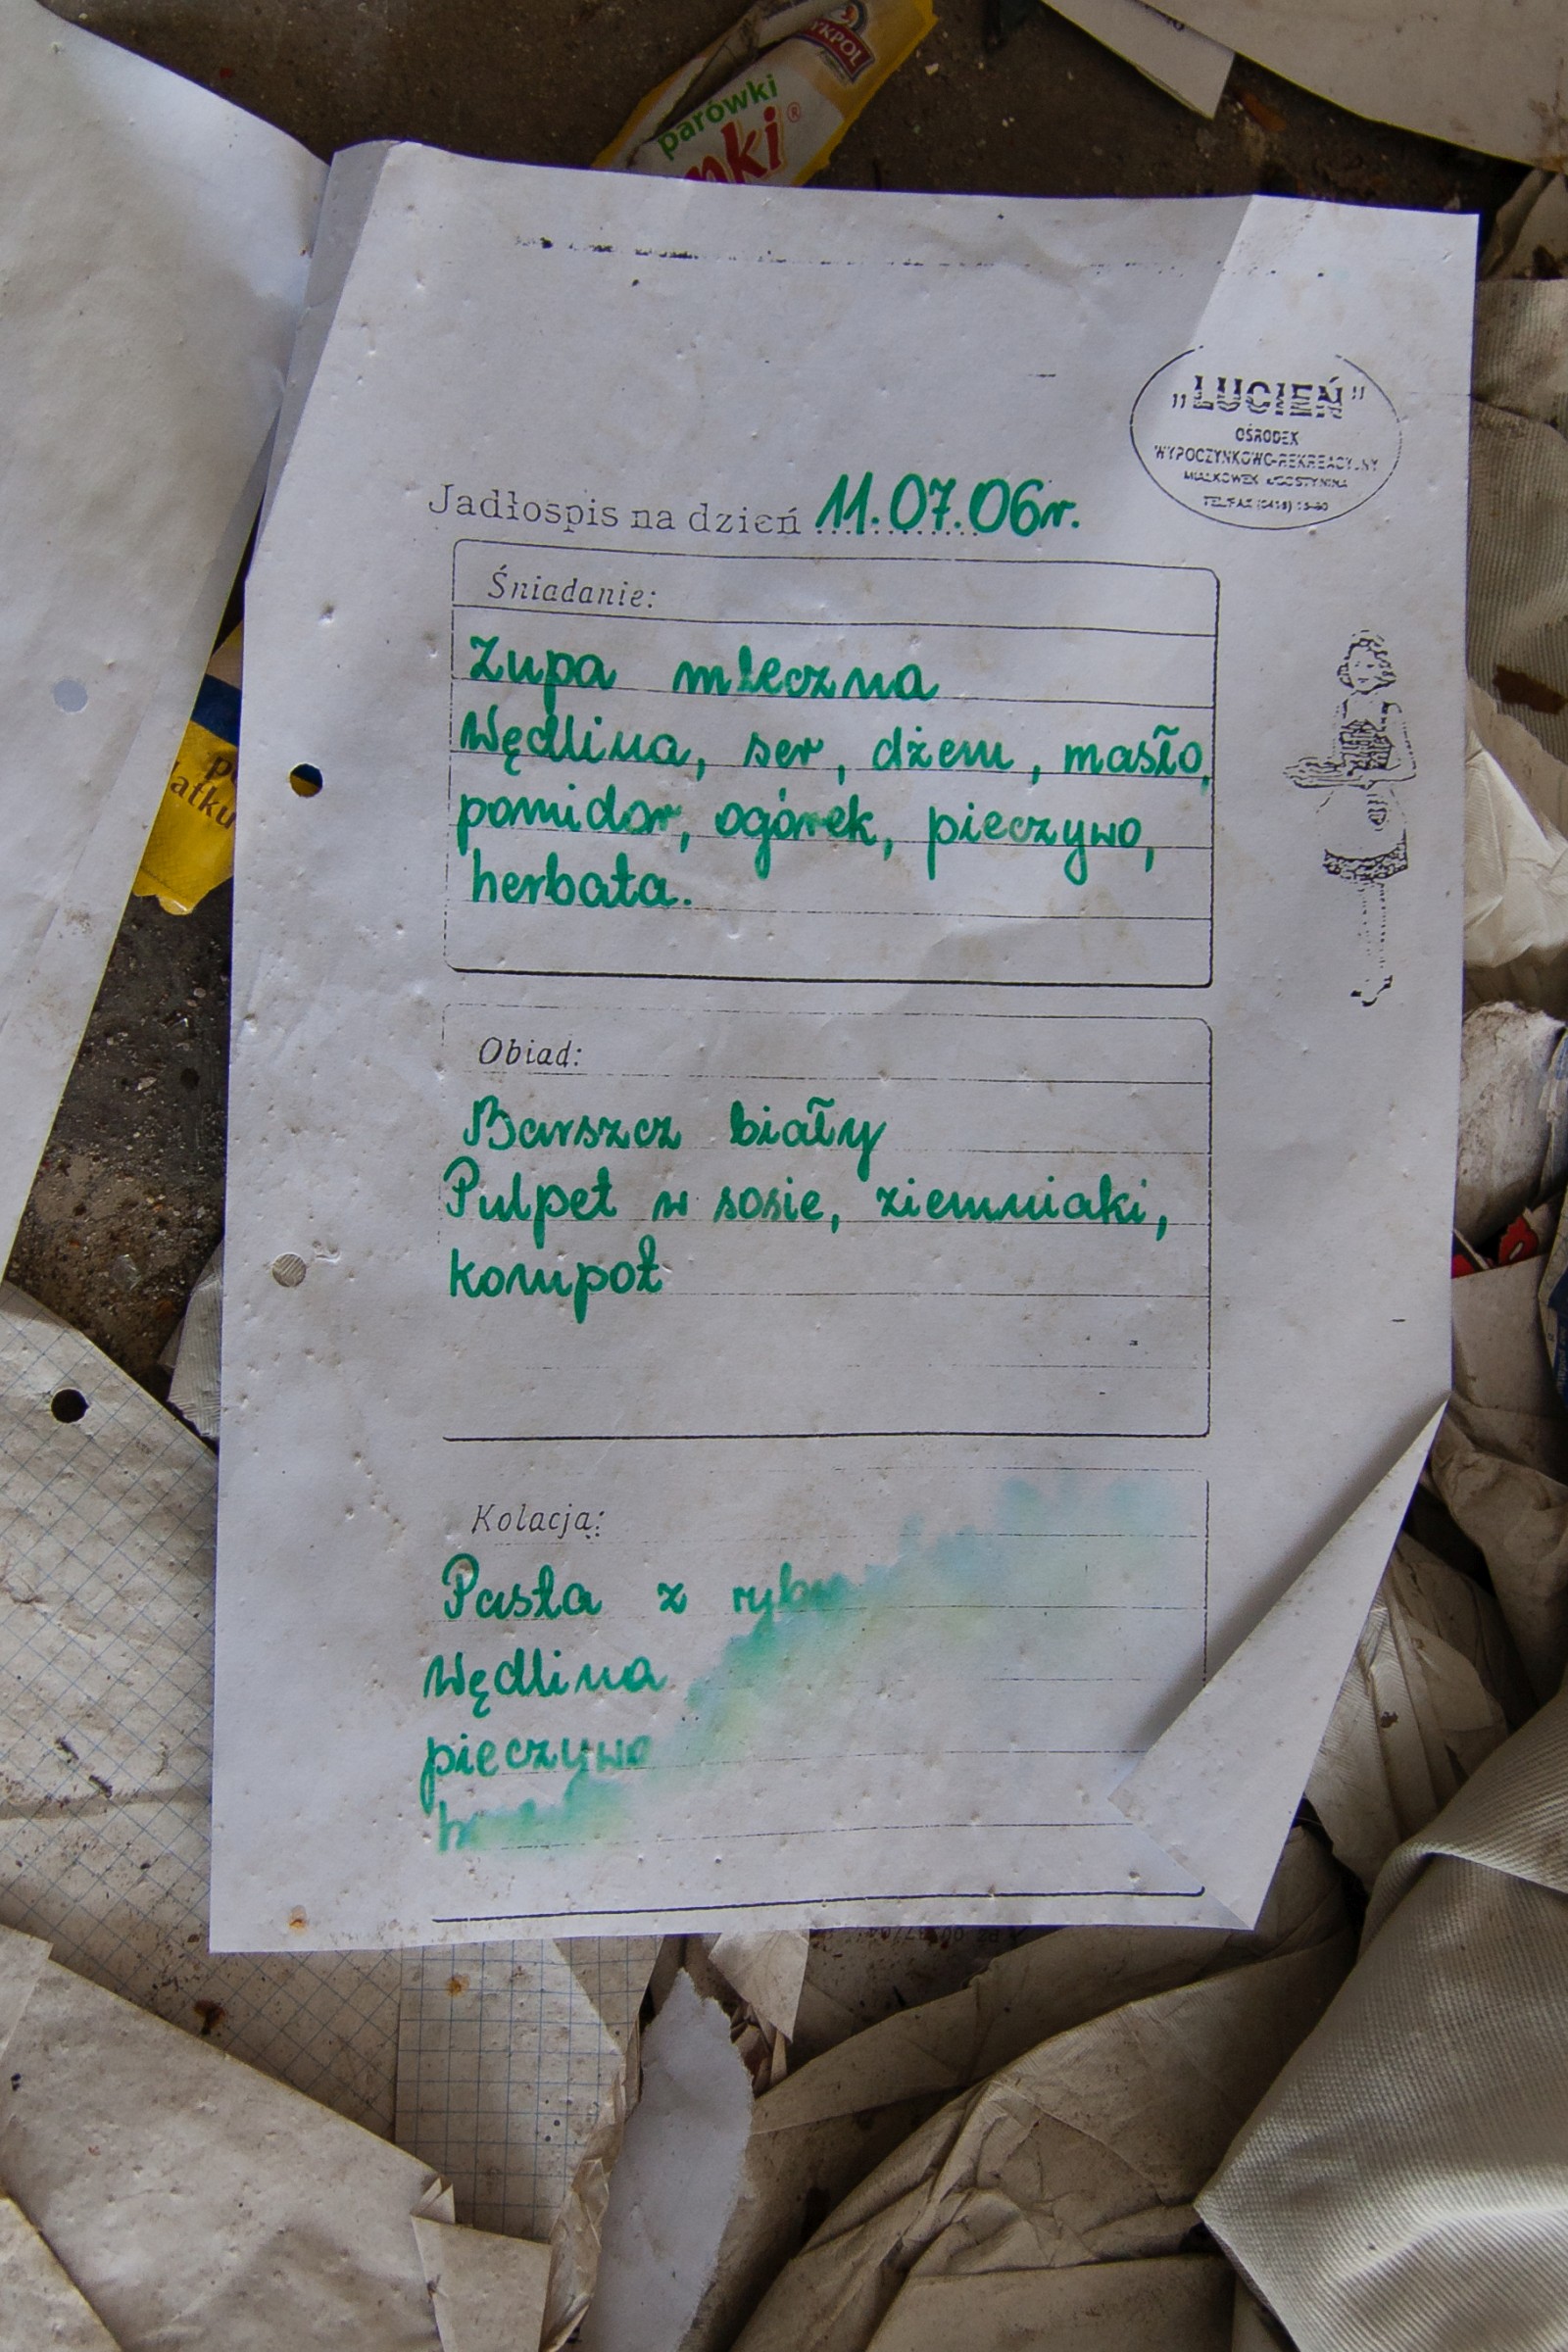 YKPOL
parówki
nki®
„LUCIEŃ"
OŚRODEK
WYPOCZYNKOWO-REKREACYJNY
Jadłospis na dzień 11.07.06r.
Śniadanie:
Zupa mleczna
Wędlina, ser, dżem, masło,
pomidor, ogórek, pieczywo,
herbata.
Obiad:
Barszcz biały
Pulpet w sosie, ziemniaki,
kompot
Kolacja:
Pasta z
Wędlina
pieczywo